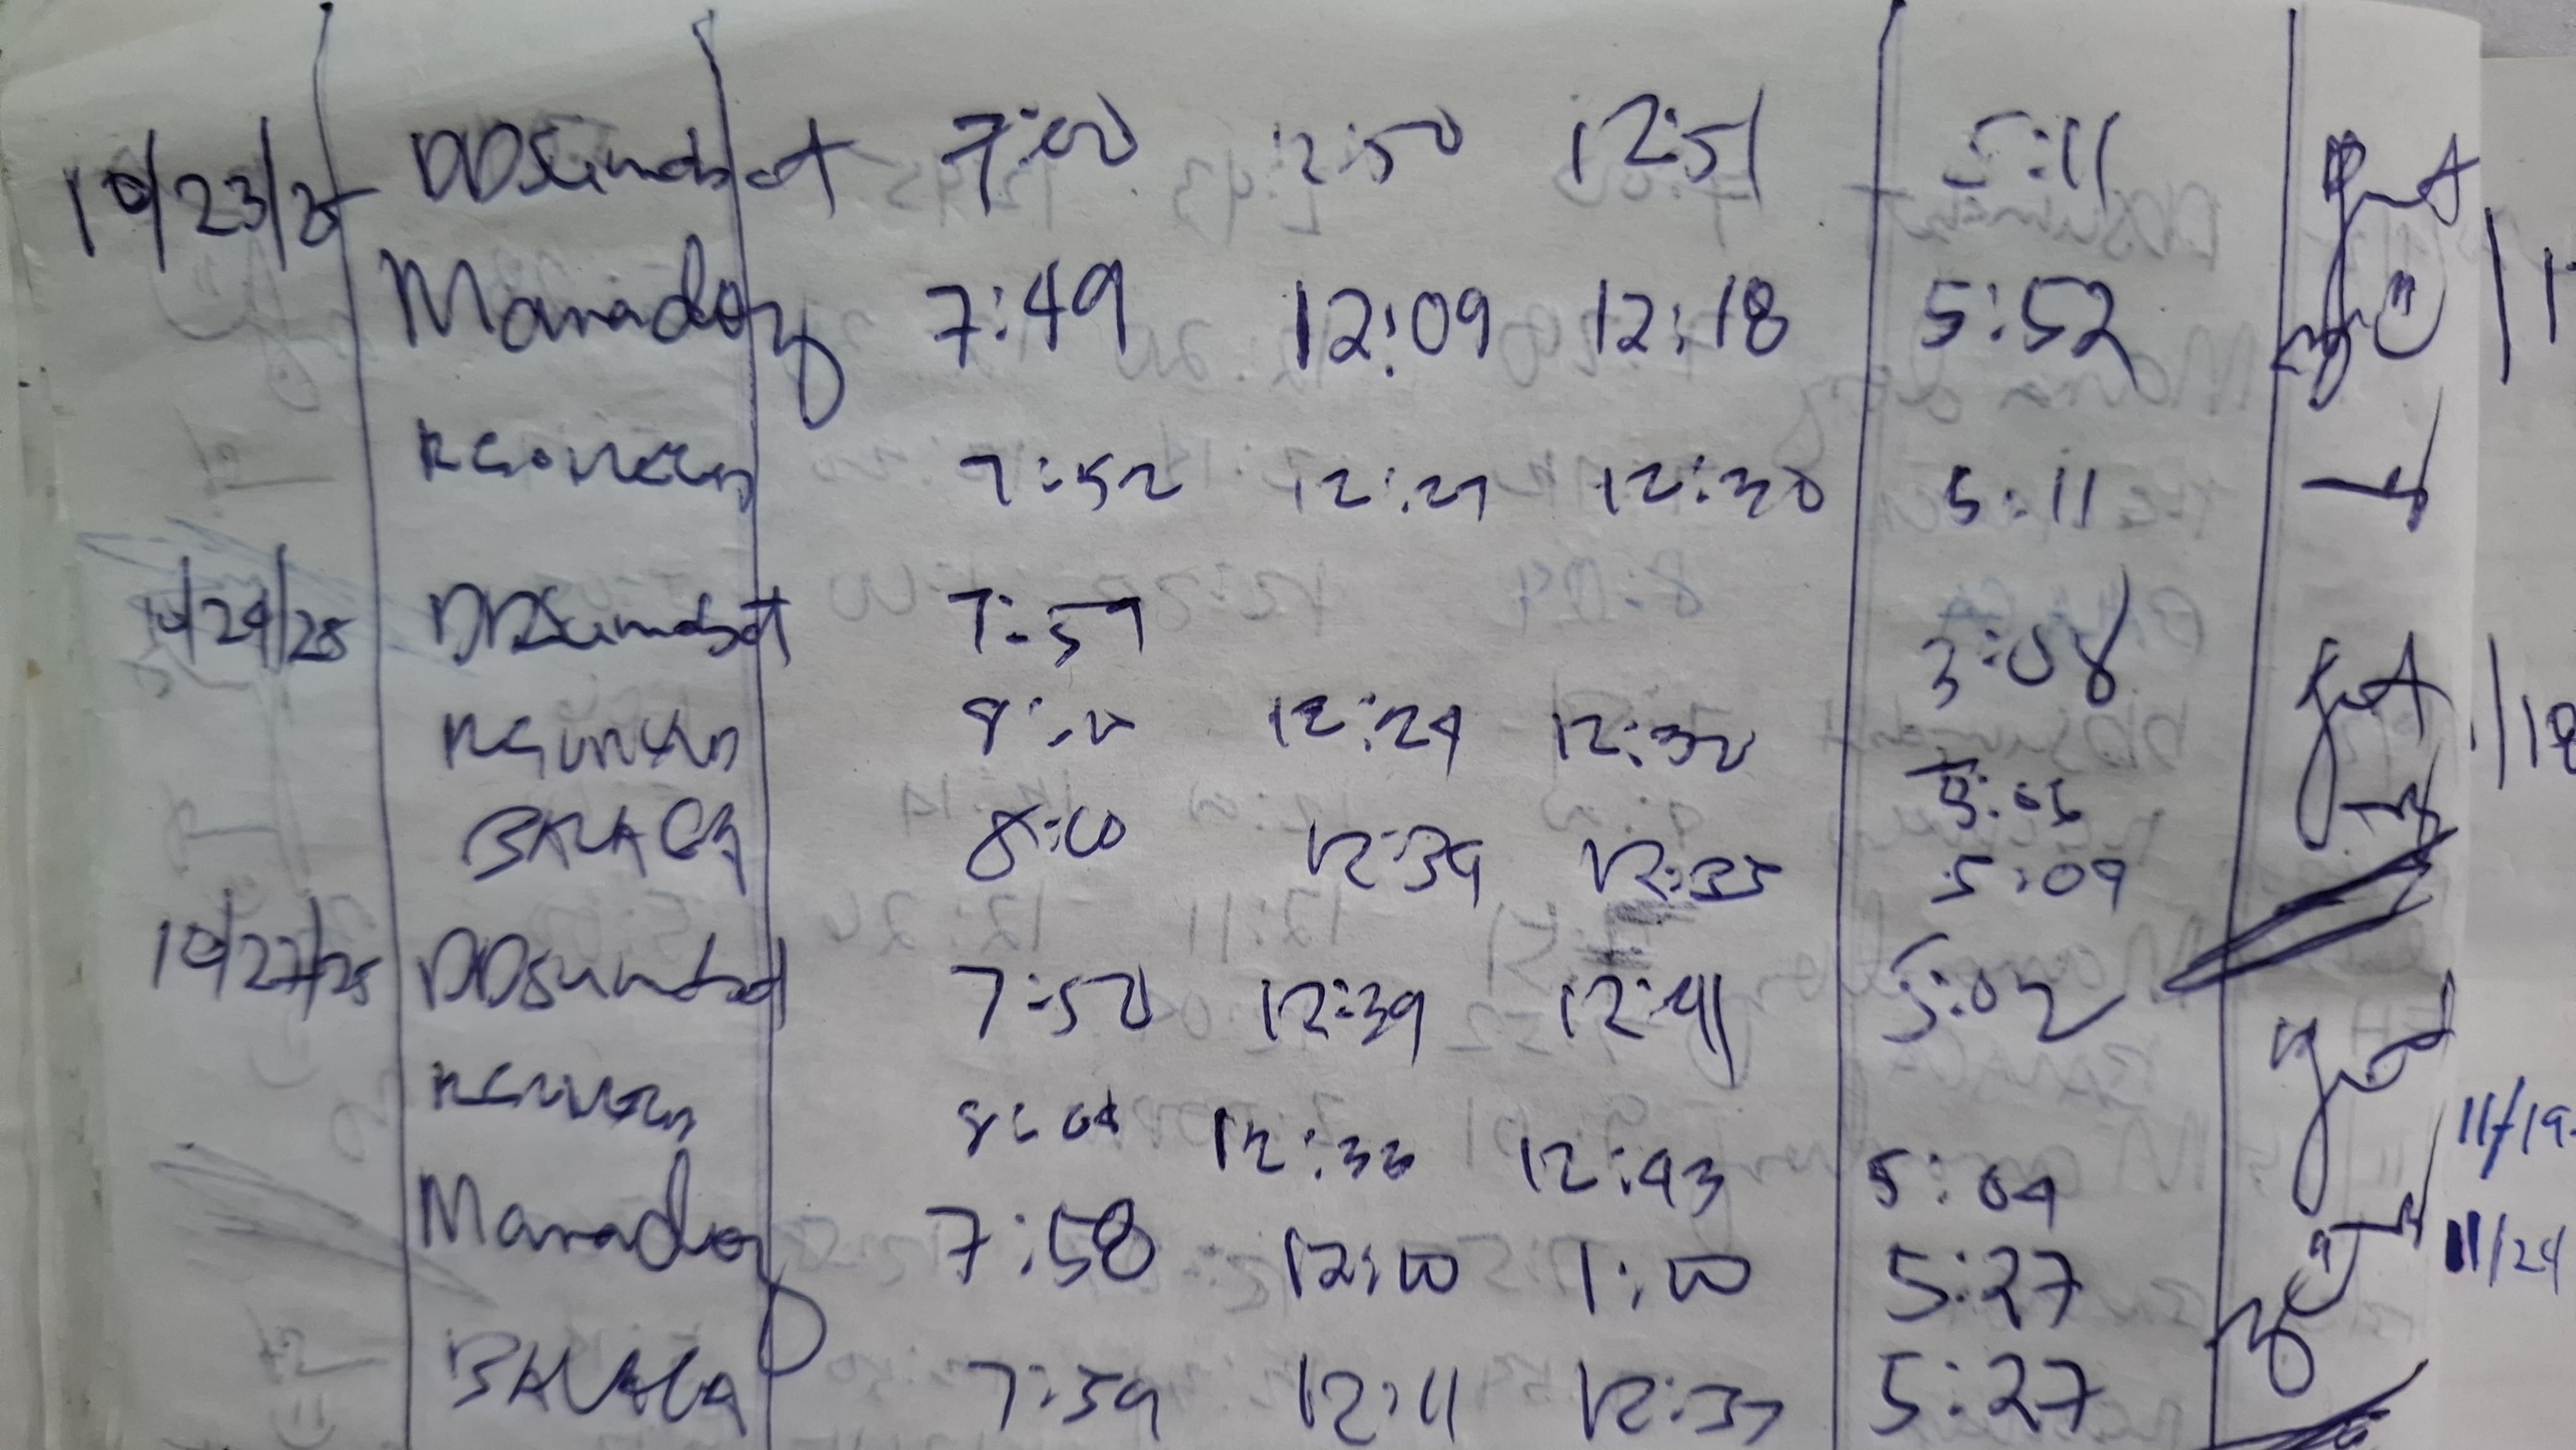 10/23/25 DDSumabat 7:00 12:50 12:51 5:11
Manadoy 7:49 12:09 12:18 5:52
7:52 12:27 12:30 5:11
10/24/25 DDSumabat 7:57 3:08
8:00 12:24 12:30 5:05
BALACA 8:00 12:34 12:35 5:09
10/27/25 DDSumabat 7:50 12:39 12:41 5:02
8:04 12:33 12:43 5:04 11/19
Manadoy 7:58 12:00 1:00 5:27 11/24
BALACA 7:59 12:11 12:37 5:27